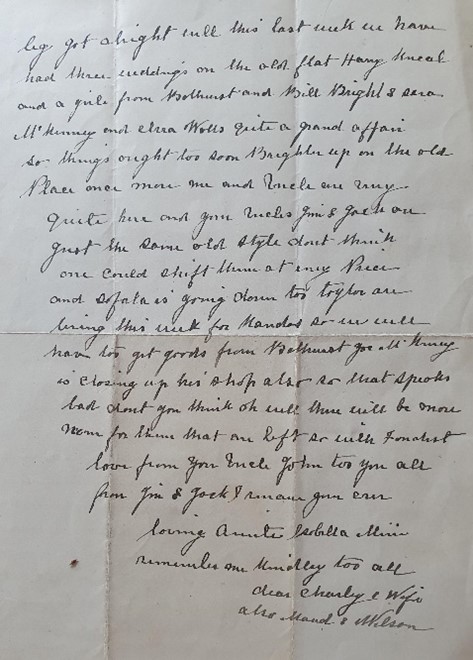 leg got alright well this last week we have
had three weddings on the old flat Harry
and a girle from Bathurst and Bill Bright & sara
McKinney and Clara Wolls quite a grand affair
so things ought too soon Brighten up on the old
Place once more me and Uncle are very
quite here and your Uncles Jim & Jack are
Just the same old style dont think
one could shift them at eney Price
and sofala is going down too taylor are
this week for so we will
have too get goods from Bathurst Joe McKinney
is closing up his shop also so that speaks
bad dont you think oh well there will be more
room for them that are left so with Fondest
love from your Uncle John too you all
from Jim & Jack I remain your ever
loving Auntie Isabella
remember me kindley too all
dear Charley & Wife
also Maud & Nelson